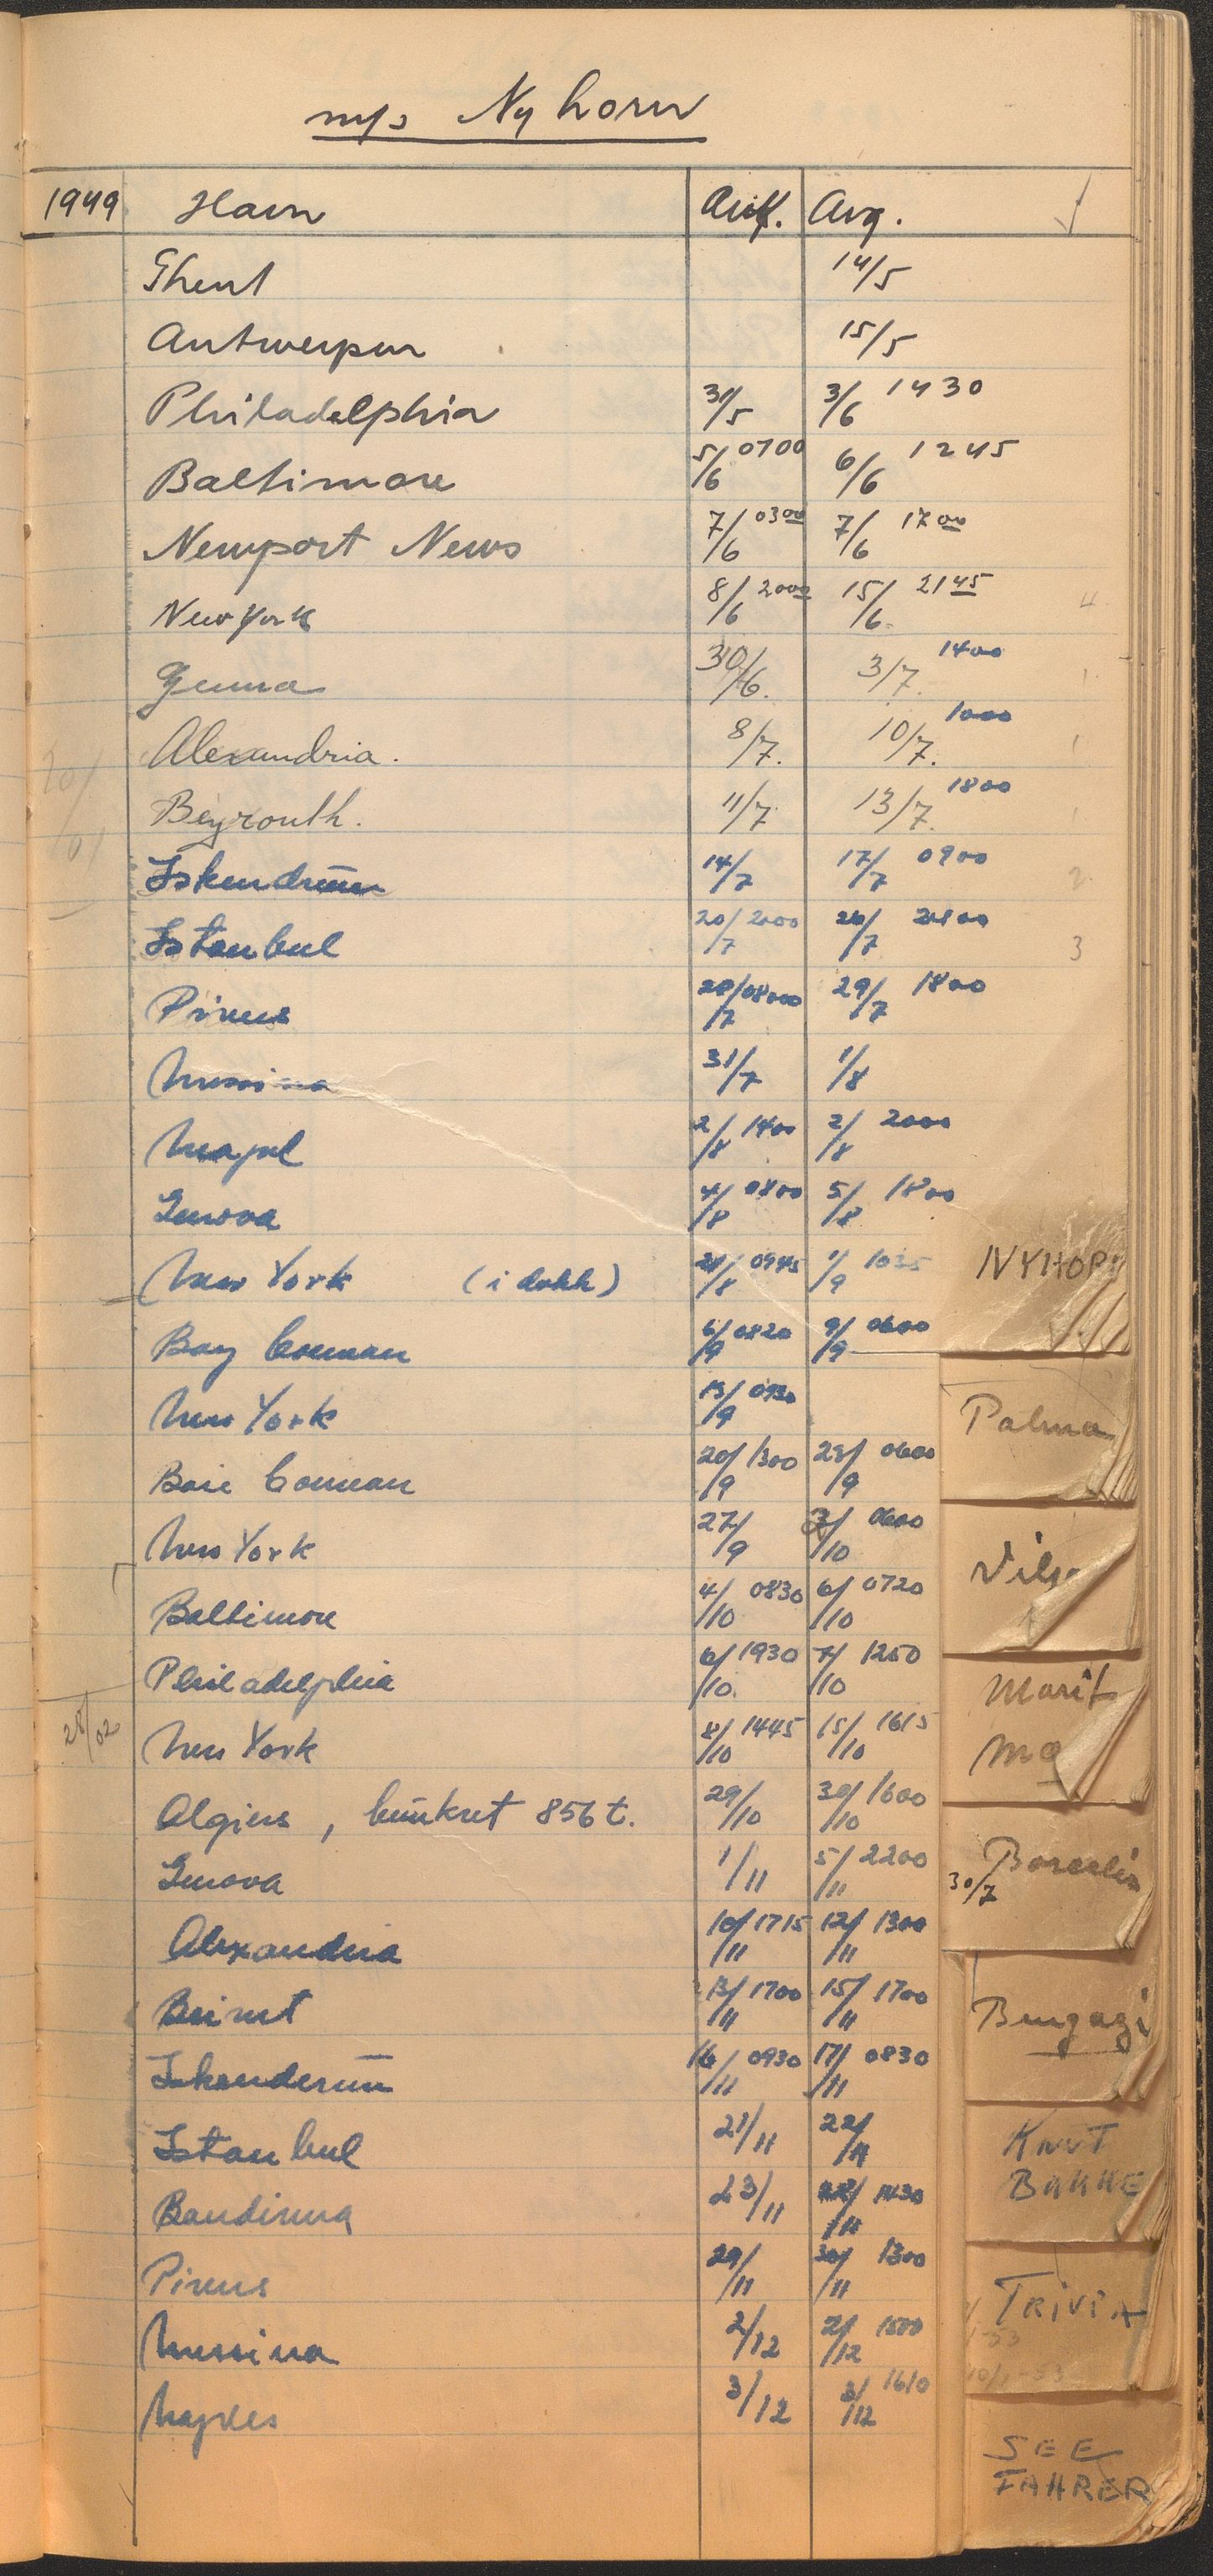 m/s Nyhorn
1949 Havn Ank. Avg.
Ghent 14/5
Antwerpen 15/5
Philadelphia 31/5 3/6 1430
Baltimore 5/6 0700 6/6 1245
Newport News 7/6 0300 7/6 1700
New York 8/6 2000 15/6 2145 4
Genua 30/6. 3/7. 1400 1
Alexandria. 8/7. 10/7. 1000 1
Beyrouth. 11/7 13/7. 1800 1
Iskendrun 14/7 17/7 0900 2
Istanbul 20/7 2000 26/7 3
Pireus 28/7 29/7 1800
Messina 31/7 1/8
Neapel 2/8 1400 2/8 2000
Genova 4/8 0800 5/8 1800
New York (i dokk) 0945 1/9 1035
NYHORN
Bay Comeau 6/9 0820 9/9 0600
New York 13/9 0930
Palma
Baie Comeau 20/9 1300 23/9 0600
New York 27/9 3/10 0600
Baltimore 4/10 0830 6/10 0720
Philadelphia 6/10. 1930 7/10 1250
Marit
25/02 New York 8/10 1445 15/10 1615
Algiers, bunkret 856 t. 29/10 30/10 1600
Genova 1/11 5/11 2200
30/7
Alexandria 10/11 1715 12/11 1300
Beirut 13/11 1700 15/11 1700
Bengazi
Iskenderun 16/11 0930 17/11 0830
Istanbul 21/11 22/11
KNUT
BAKKE
Bandirma 23/11 1430
Pireus 29/11 30/11 1300
TRIVIA
Messina 2/12 2/12 1500
Naples 3/12 3/12 1610
SEE
FAHRER